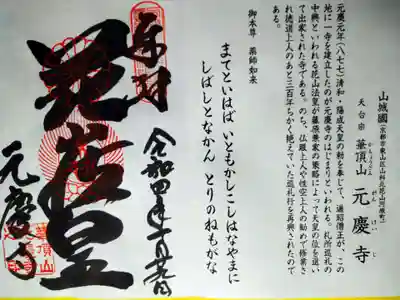 山城國
（京都市東山区山科北花山河原町）
天台宗 華頂山 元慶寺
かちょうざん がんけいじ
元慶元年（八七七）清和・陽成天皇の勅を奉じて、遍昭僧正が、この
地に一寺を建立したのが元慶寺のはじまりといわれる。札所巡礼の
中興といわれる花山法皇が藤原兼家の策略によって天皇の位を退い
て出家された寺である。のち、仏眼上人や性空上人の勧めで修業さ
れ徳道上人のあと三百年ちかく絶えていた巡礼行を再興されたので
ある。
御本尊 薬師如来
まてといはば いともかしこしはなやまに
しばしとなかん とりのねもがな
奉拝
花山法皇
元慶寺
華頂山